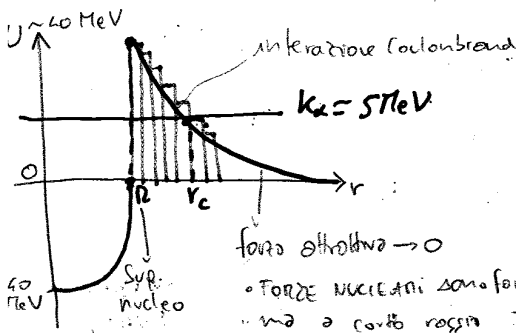 U ~40 MeV
interazione Coulombiana
Kα = 5 MeV
0
R
rc
r
Sup.
nucleo
forza attrattiva → 0
40
MeV
• FORZE NUCLEARI sono for
ma a corto raggio